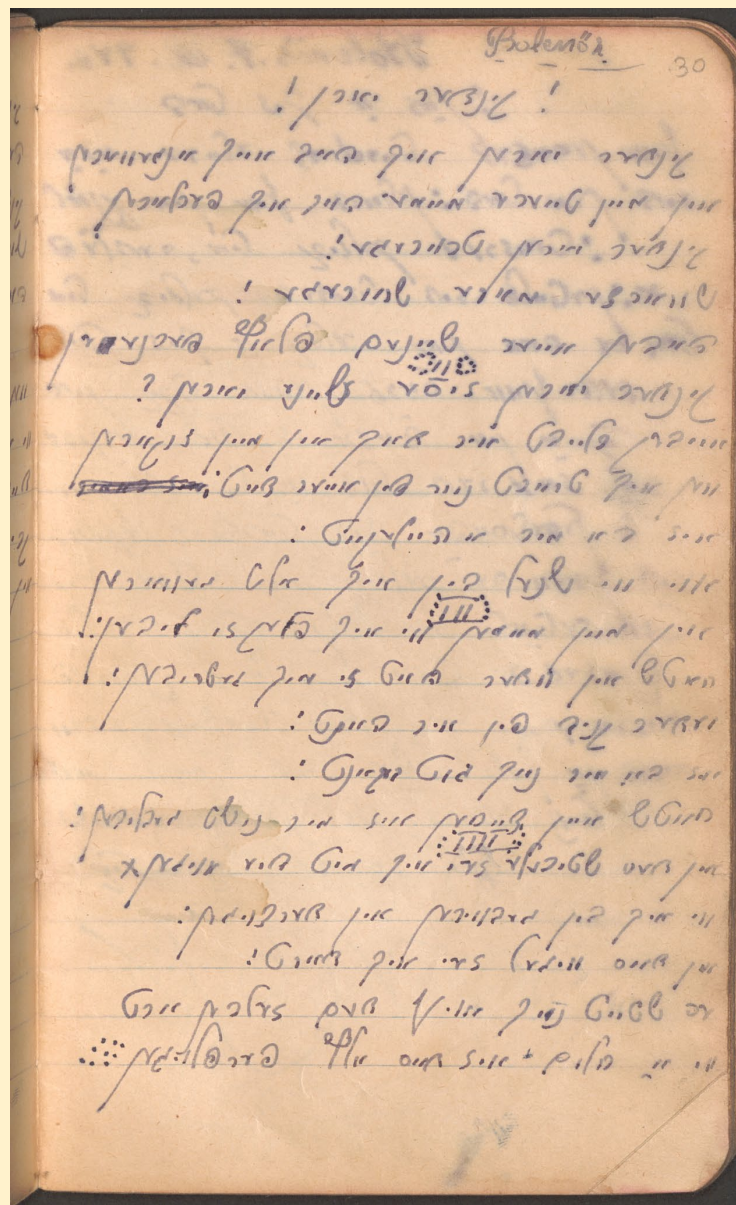 Bolenör. 30
! קינדער יארן !
קינדער יארן אויך האב אייך אינגעווירן
אין מיין טייערע מאמע הוב איך פארלוירן
קינדער יארן טרויריגע!
שווארצע מאורע שוידריגע !
האבן אייער שיינעם פלאץ פארנומען
II
קינדער יארן זיסע שיינע יארן ?
אייביק בלייבט איר וואך אין מיין זכארן
ווען איך טראכט נור פון אייער צייט!
איז בא מיר א היילעקייט :
אוי ווי שנעל בין איך אלט געווארן
III
אין מיין מאמען ווי איך פלעג זי ליבען:
האטש אין חדער האט זי מיך געטריבען!
יעדער קניפ פון איר האנט!
איז בא מיר נויך גוט באקאנט !
חאטש איין צייכען איז מיר נישט געבליבן!
IIII
אין דאס שטיבעלע זעי איך מיט דיא אויגען
ווי איך בין געבוירן אין דערצויגען:
אין דאס וויגעל זעי איך דארט!
עס שטייט נויך אויף דעם זעלבן ארט
ווי א חלום איז דאס אלץ פערפלויגען